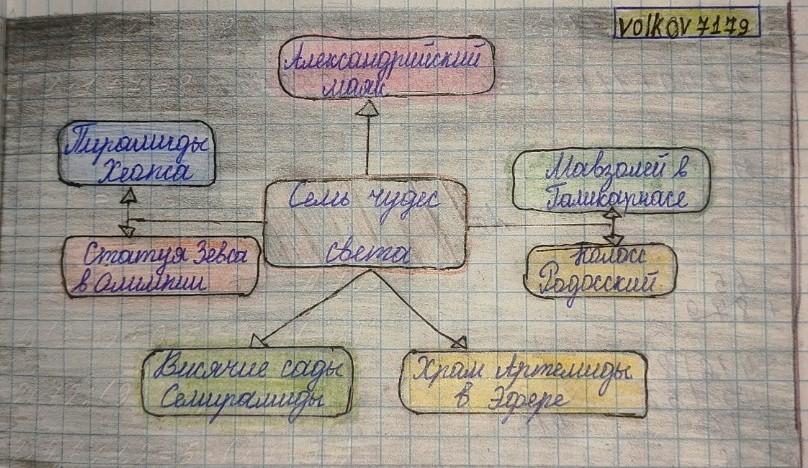 Volkov 7179
Александрийский
маяк
Пирамиды
Хеопса
Мавзолей в
Галикарнасе
Семь чудес
света
Статуя Зевса
в Олимпии
Колосс
Родосский
Висячие сады
Семирамиды
Храм Артемиды
в Эфере